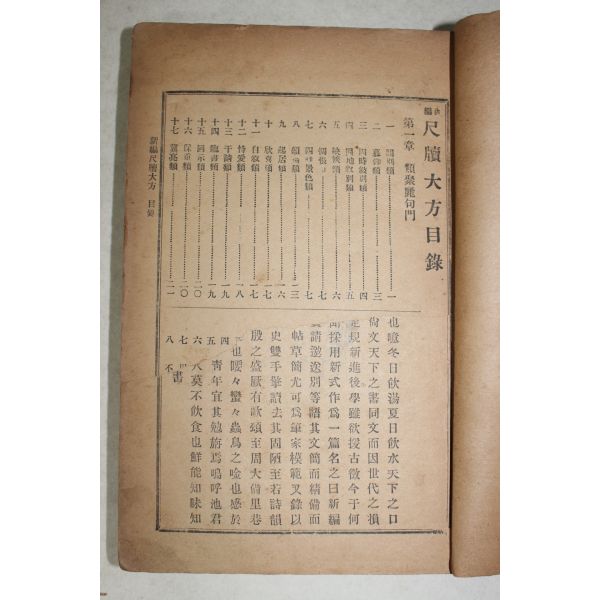 新編尺牘大方目錄
第一章 類聚儷句門
一 類 一
二 慕仰類 三
三 四時敍別類 四
四 四地敍別類 五
五 類 六
六 類 七
七 四時景色類 七
八 類 一三
九 起居類 一六
十 欣喜類 一七
十一 自敍類 一七
十二 恃愛類 一八
十三 干請類 一九
十四 臨書類 一九
十五 回示類 二〇
十六 保重類 二〇
十七 冀亮類 二一
也噫冬日飮湯夏日飮水天下之口
尙文天下之書同文而因世代之損
規新進後學雖欲援古徵今于何
採用新式作爲一篇名之曰新編
請邀送別等語其文簡而精備而
帖草簡尤可爲筆家模範又錄以
史雙手擎讀去其固陋至若詩韻
殷之盛厥有歌頌至周大備里巷
也喓々蠻々蟲鳥之唫也感於
靑年宜其勉旃焉嗚呼池君
人莫不飮食也鮮能知味知
四
五
六
七
八
書
不
新編尺牘大方 目錄